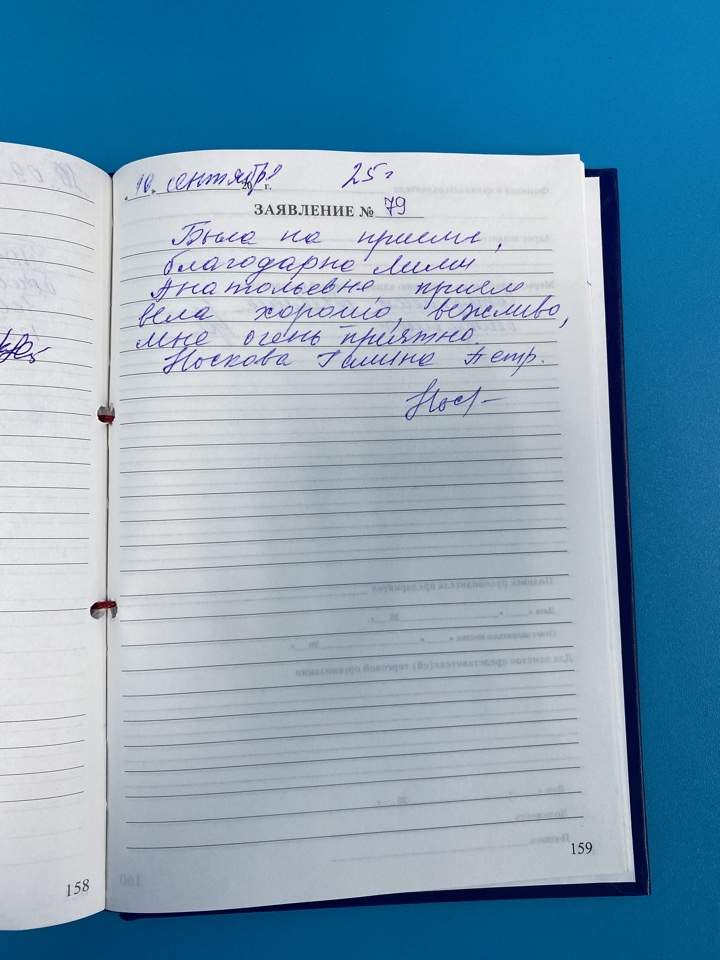 10. сентября 20 г. 25 г
ЗАЯВЛЕНИЕ № 79
Была на приеме,
благодарна Лилии
Анатольевне, прием
вела хорошо, вежливо,
мне очень приятно.
Носкова Галина Петр.
158
159